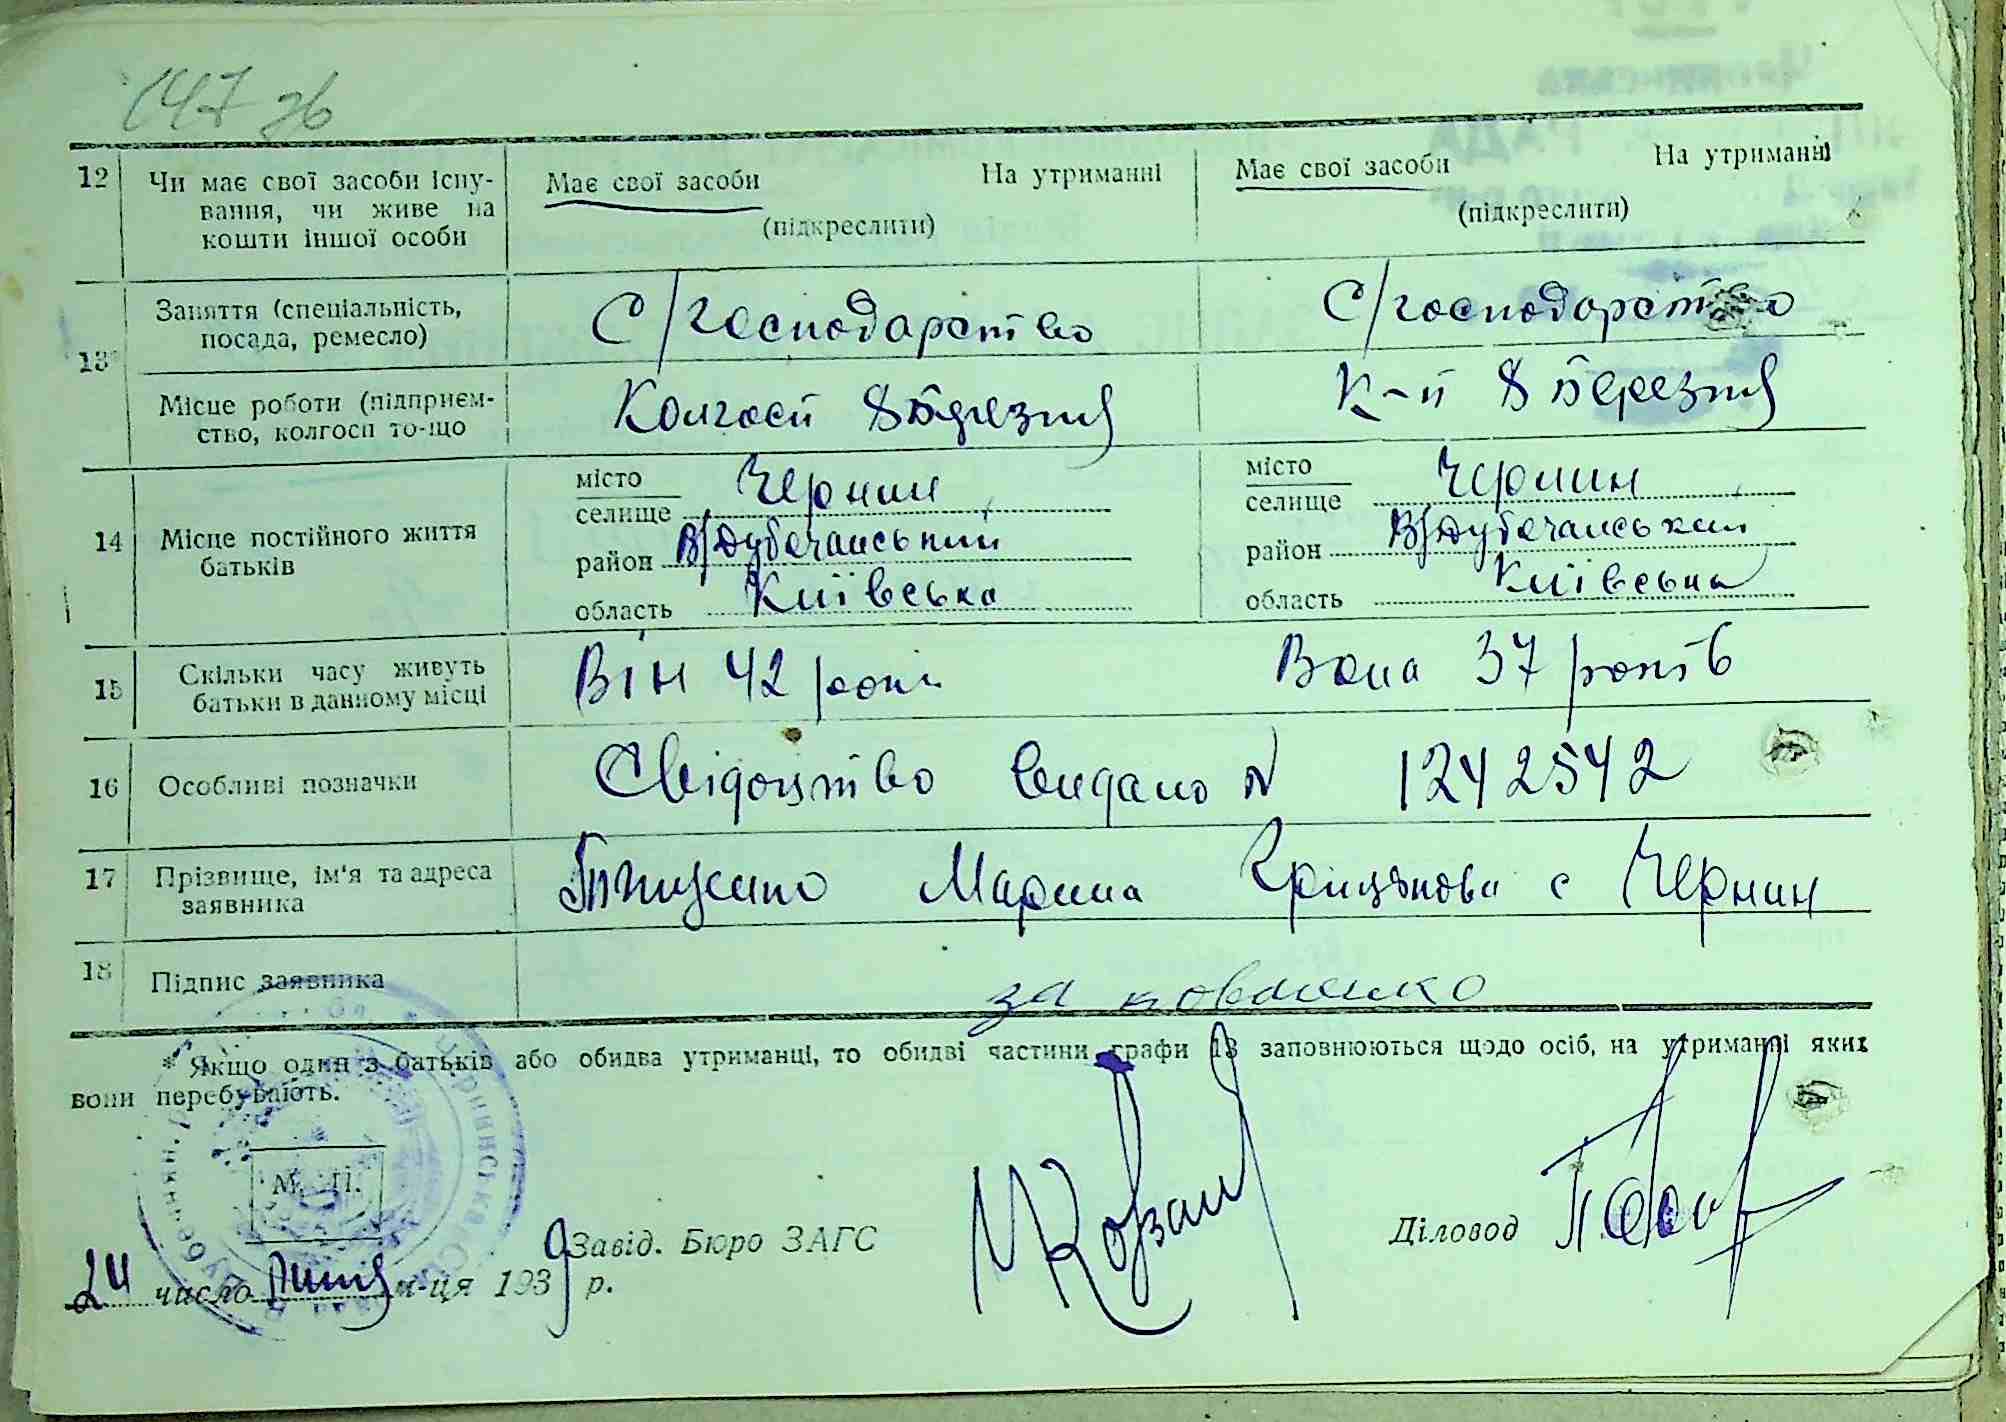 147 зв
12 Чи має свої засоби існу- Має свої засоби На утриманні Має свої засоби На утриманні
вання, чи живе на (підкреслити) (підкреслити)
кошти іншої особи
13* Заняття (спеціальність, С/господарство С/господарство
посада, ремесло)
Місце роботи (підприєм- Колгосп 8 Березня К-п 8 Березня
ство, колгосп то-що
14 Місце постійного життя батьків
місто Чернин місто Чернин
селище селище
район В/Дубечанський район В/Дубечанський
область Київська область Київська
15 Скільки часу живуть Він 42 роки Вона 37 років
батьки в данному місці
16 Особливі позначки Свідоцтво видано N 1242542
17 Прізвище, ім'я та адреса Марина Грицькова с Чернин
заявника
18 Підпис заявника за
* Якщо один з батьків або обидва утриманці, то обидві частини графи 13 заповнюються щодо осіб, на утриманні яких
вони перебувають.
М. П.
Завід. Бюро ЗАГС Діловод
24 число липня м-ця 1939 р.